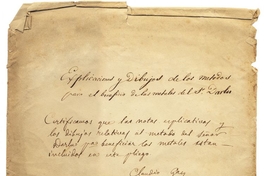 Explicacion y Dibujos de los metodos
para el beneficio de los metales del Sr. Darlu
Certificamos que las notas esplicativas y
los dibujos relativos al metodo del señor
Darlu para beneficiar los metales estan
incluidos en este pliego
Claudio Gay